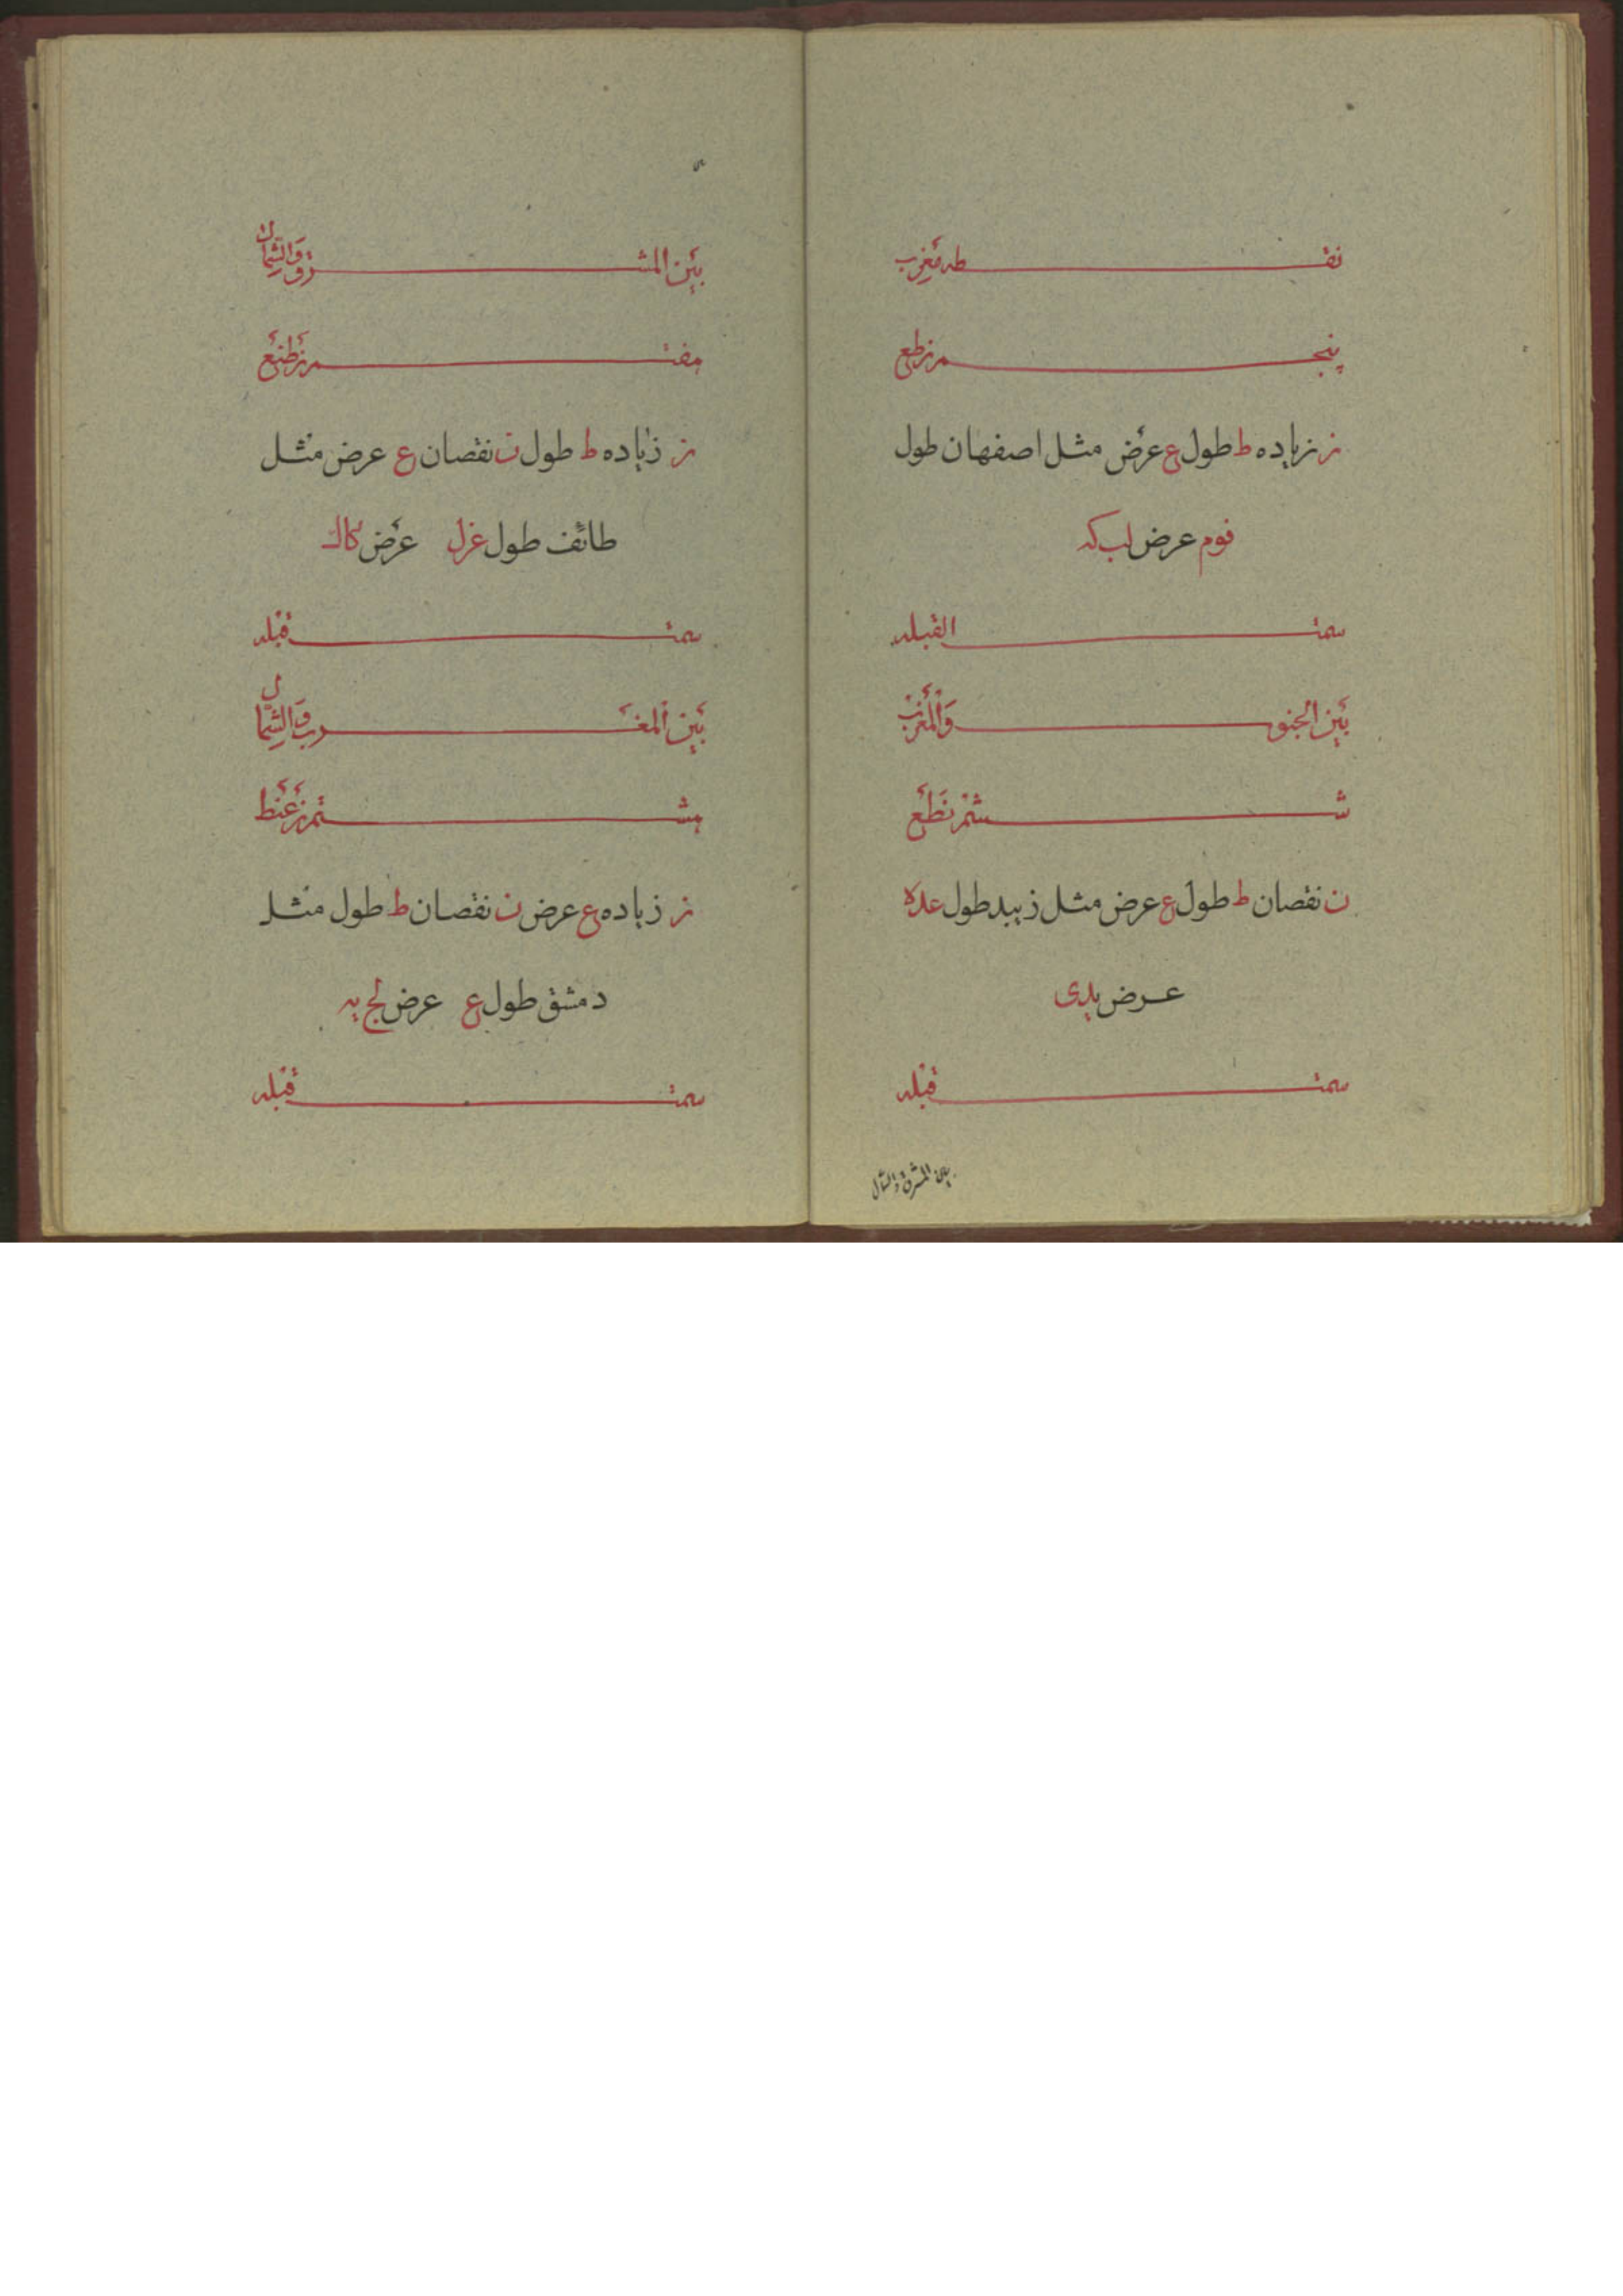 نقطه مغرب
پنجم زطع
ز زیاده ط طول ع عرض مثل اصفهان طول
فوم عرض لب که
سمت القبله
بین الجنوب والمغرب
ششم نطع
ن نقصان ط طول ع عرض مثل زبید طول عده
عرض یدی
سمت قبله
بین المشرق والشمال
بین المشرق والشمال
هفتم زطنع
ز زیاده ط طول ن نقصان ع عرض مثل
طائف طول عزل عرض کاک
سمت قبله
بین المغرب والشمال
هشتم زعنط
ز زیاده ع عرض ن نقصان ط طول مثل
دمشق طول ع عرض لج یه
سمت قبله